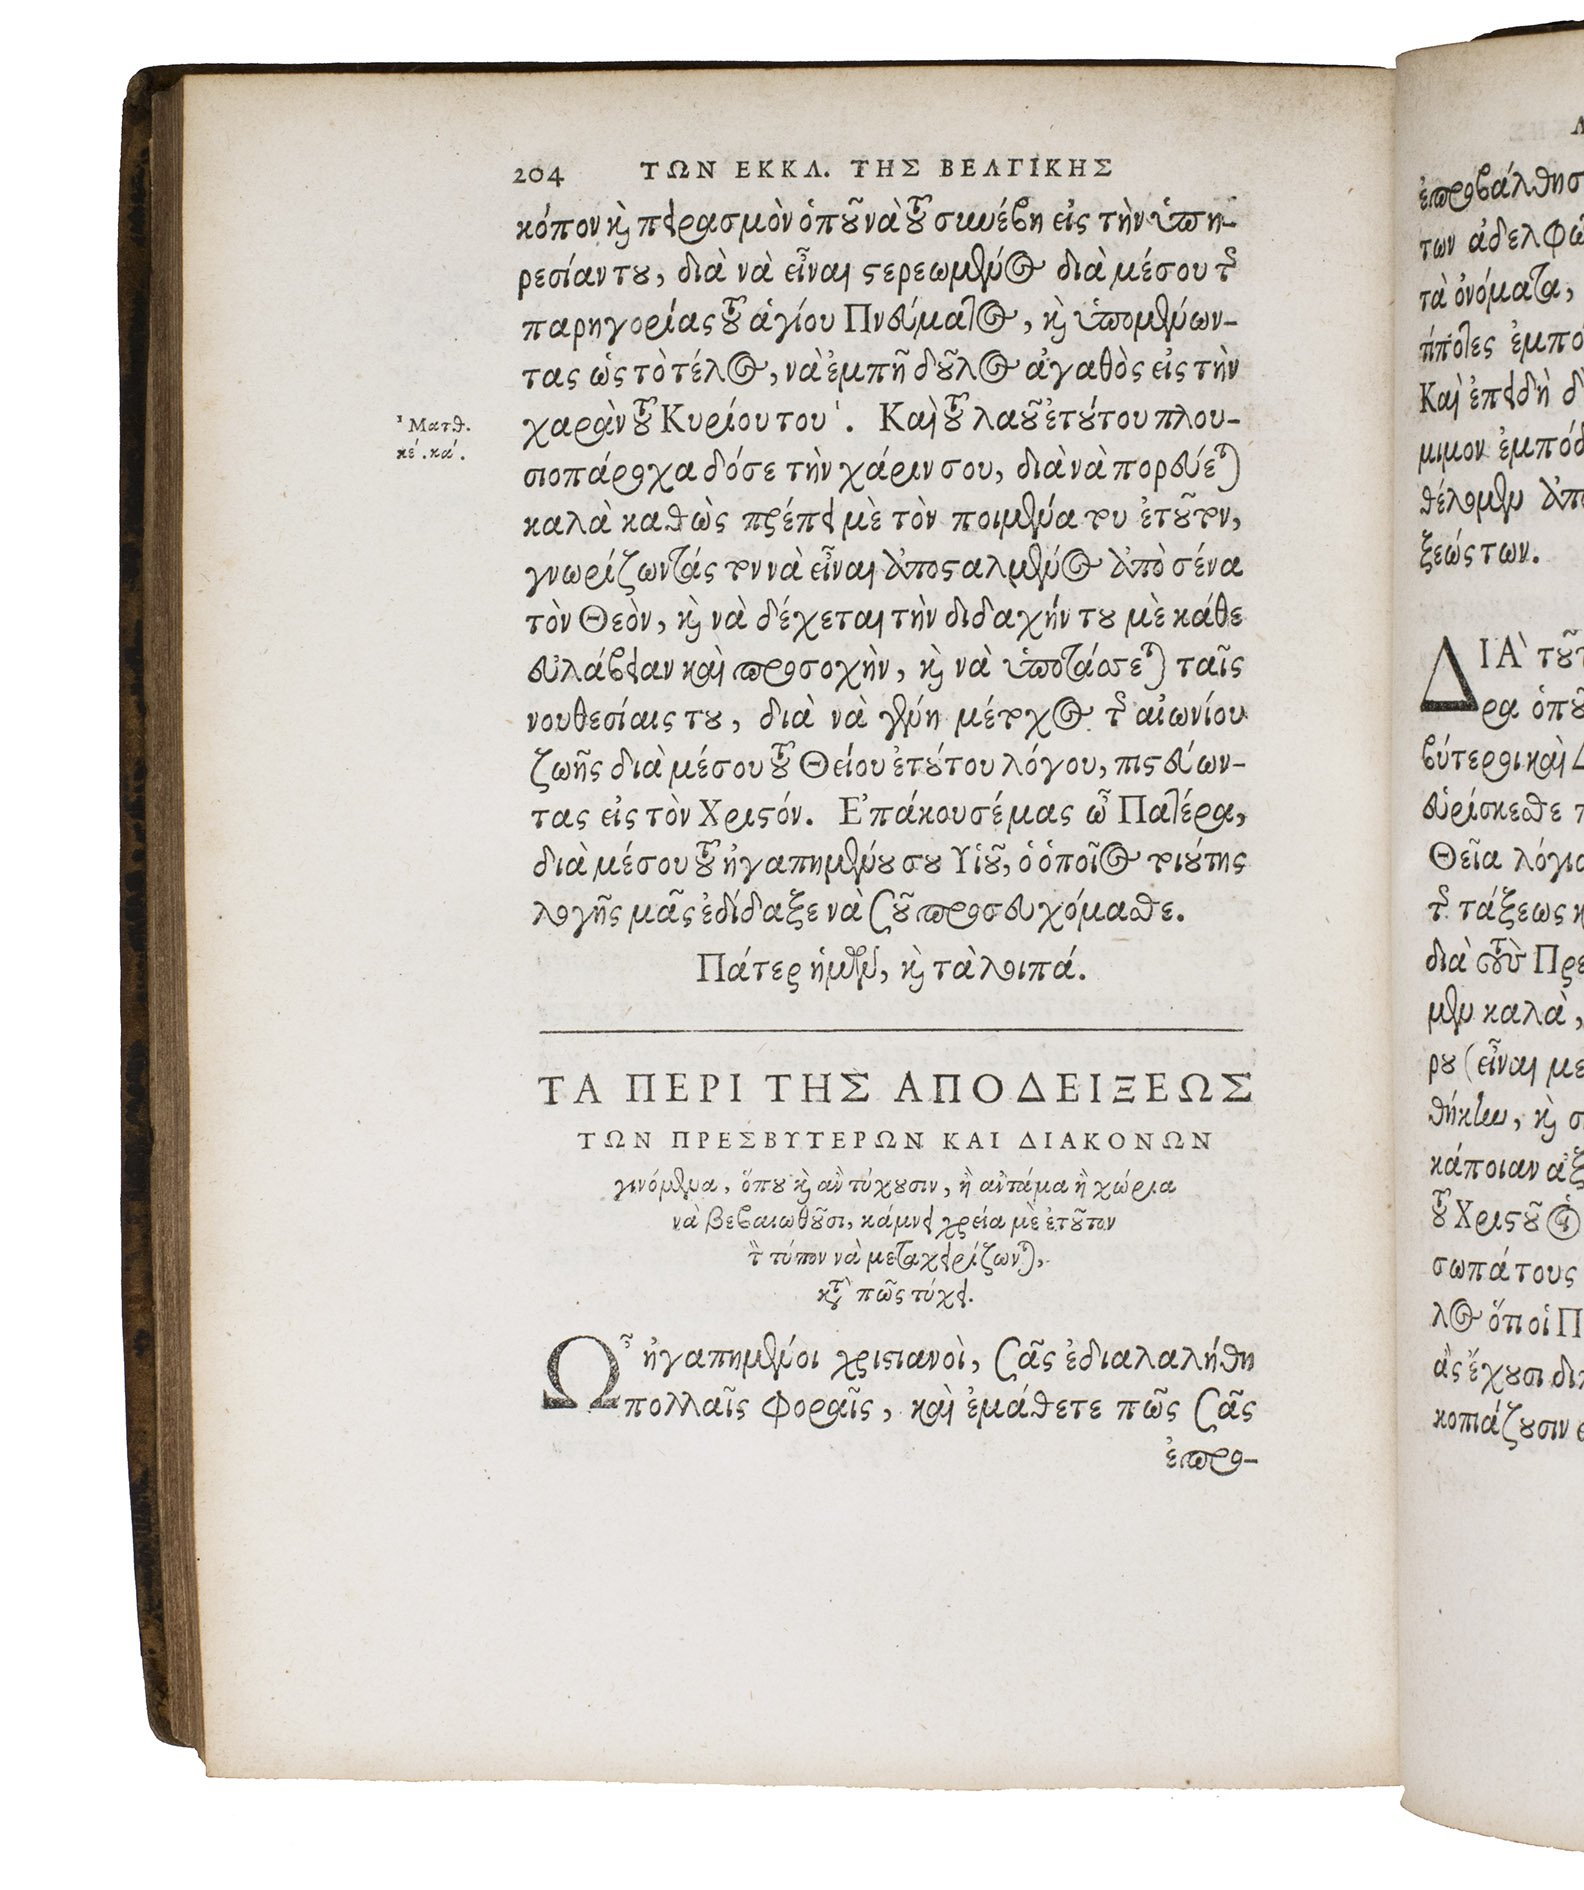 204 ΤΩΝ ΕΚΚΛ. ΤΗΣ ΒΕΛΓΙΚΗΣ
κόπον καὶ πειρασμὸν ὁποῦ νὰ τοῦ συνέβη εἰς τὴν ὑπη-
ρεσίαν του, διὰ νὰ εἶναι στερεωμένος διὰ μέσου τῆς
παρηγορίας τοῦ ἁγίου Πνεύματος, καὶ ὑπομένων-
τας ὡς τὸ τέλος, νὰ ἐμπῆ δοῦλος ἀγαθὸς εἰς τὴν
χαρὰν τοῦ Κυρίου του ¹. Καὶ τοῦ λαοῦ ἐτούτου πλου-
¹ Ματθ.
κέ. κά.
σιοπάροχα δόσε τὴν χάριν σου, διὰ νὰ πορεύεται
καλὰ καθὼς πρέπει μὲ τὸν ποιμένα του ἐτοῦτον,
γνωρίζωντάς τον νὰ εἶναι ἀποσταλμένος ἀπὸ σένα
τὸν Θεὸν, καὶ νὰ δέχεται τὴν διδαχήν του μὲ κάθε
εὐλάβειαν καὶ προσοχὴν, καὶ νὰ ὑποτάσσεται ταῖς
νουθεσίαις του, διὰ νὰ γένη μέτοχος τῆς αἰωνίου
ζωῆς διὰ μέσου τοῦ Θείου ἐτούτου λόγου, πιστεύων-
τας εἰς τὸν Χριστόν. Ἐπάκουσέ μας ὦ Πατέρα,
διὰ μέσου τοῦ ἠγαπημένου σου Υἱοῦ, ὁ ὁποῖος τοιούτης
λογῆς μᾶς ἐδίδαξε νὰ σοῦ προσευχόμασθε.
Πάτερ ἡμῶν, καὶ τὰ λοιπά.
ΤΑ ΠΕΡΙ ΤΗΣ ΑΠΟΔΕΙΞΕΩΣ
ΤΩΝ ΠΡΕΣΒΥΤΕΡΩΝ ΚΑΙ ΔΙΑΚΟΝΩΝ
γινόμενα, ὅπου καὶ ἂν τύχουσιν, ἢ ἀντάμα ἢ χώρια
νὰ βεβαιωθοῦσι, κάμνει χρεία μὲ ἐτοῦτον
τὸν τύπον νὰ μεταχειρίζωνται,
κατὰ πῶς τύχει.
Ὦ ἠγαπημένοι χριστιανοὶ, σᾶς ἐδιαλαλήθη
πολλαῖς φοραῖς, καὶ ἐμάθετε πῶς σᾶς
ἐπρο-
ἐπροβάλθησ
των ἀδελφῶ
τὰ ὀνόματα,
ἐμπο
Καὶ ἐπειδὴ
μιμον ἐμπόδ
θέλομεν ἀπο
ξεώς των.
ΔΙΑ τοῦτ
ρα ὁποῦ
βύτεροι καὶ Δ
εὑρίσκεσθε
Θεῖα λόγια
τῆς τάξεως κ
διὰ τοὺς Πρε
μεν καλὰ,
ρου (εἶναι με
θήκην, καὶ σ
κάποιαν ἀξ
τοῦ Χριστοῦ
σωπά τους
λος ὅποι Π
ἂς ἔχουσι δι
κοπιάζουσιν